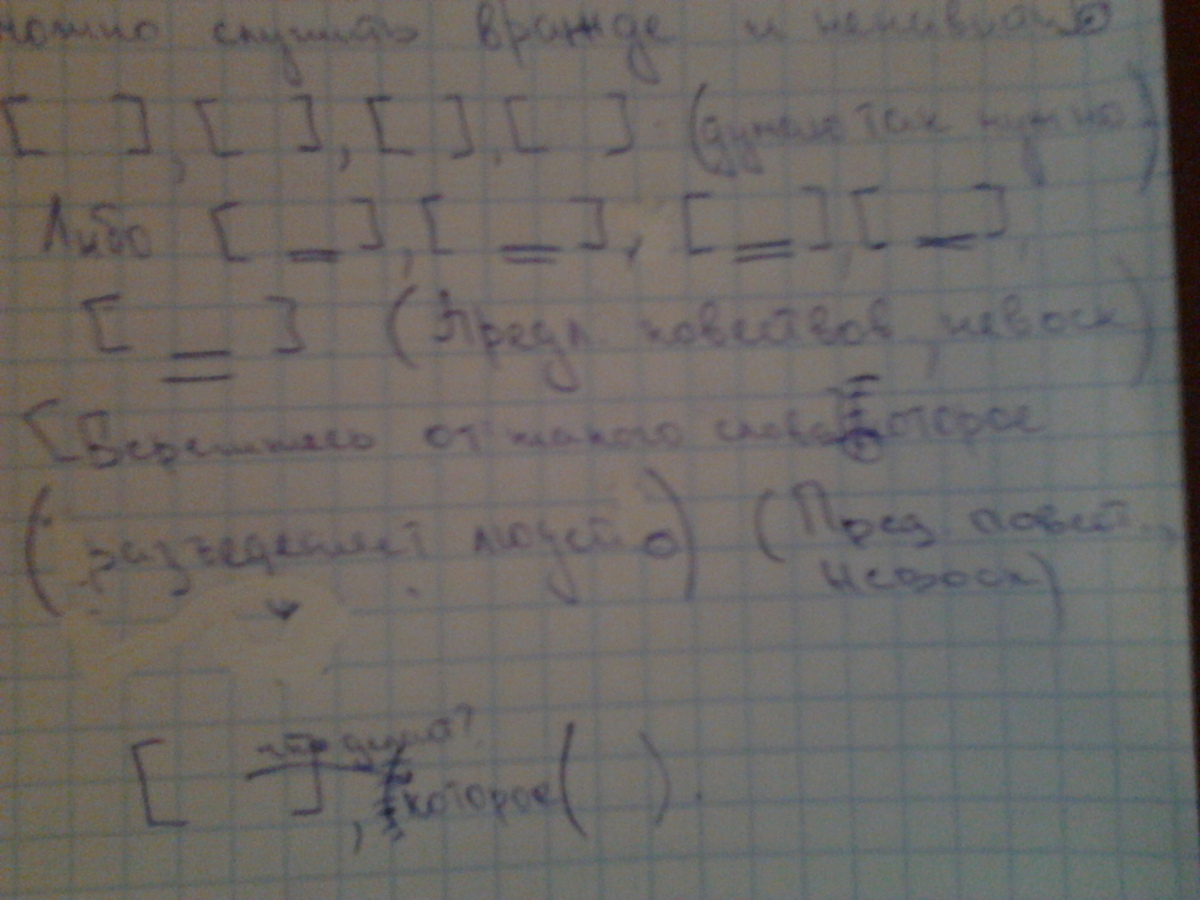 можно служить вражде и ненависти
[ ], [ ], [ ], [ ] (думаю так нужно)
Либо [ ], [ ], [ ], [ ],
[ ] (Предл. повествов, невоск)
[Берегитесь от такого слова которое
(разъединяет людей.) (Пред повест.,
невоск)
[ что делает? ], которое ( ).